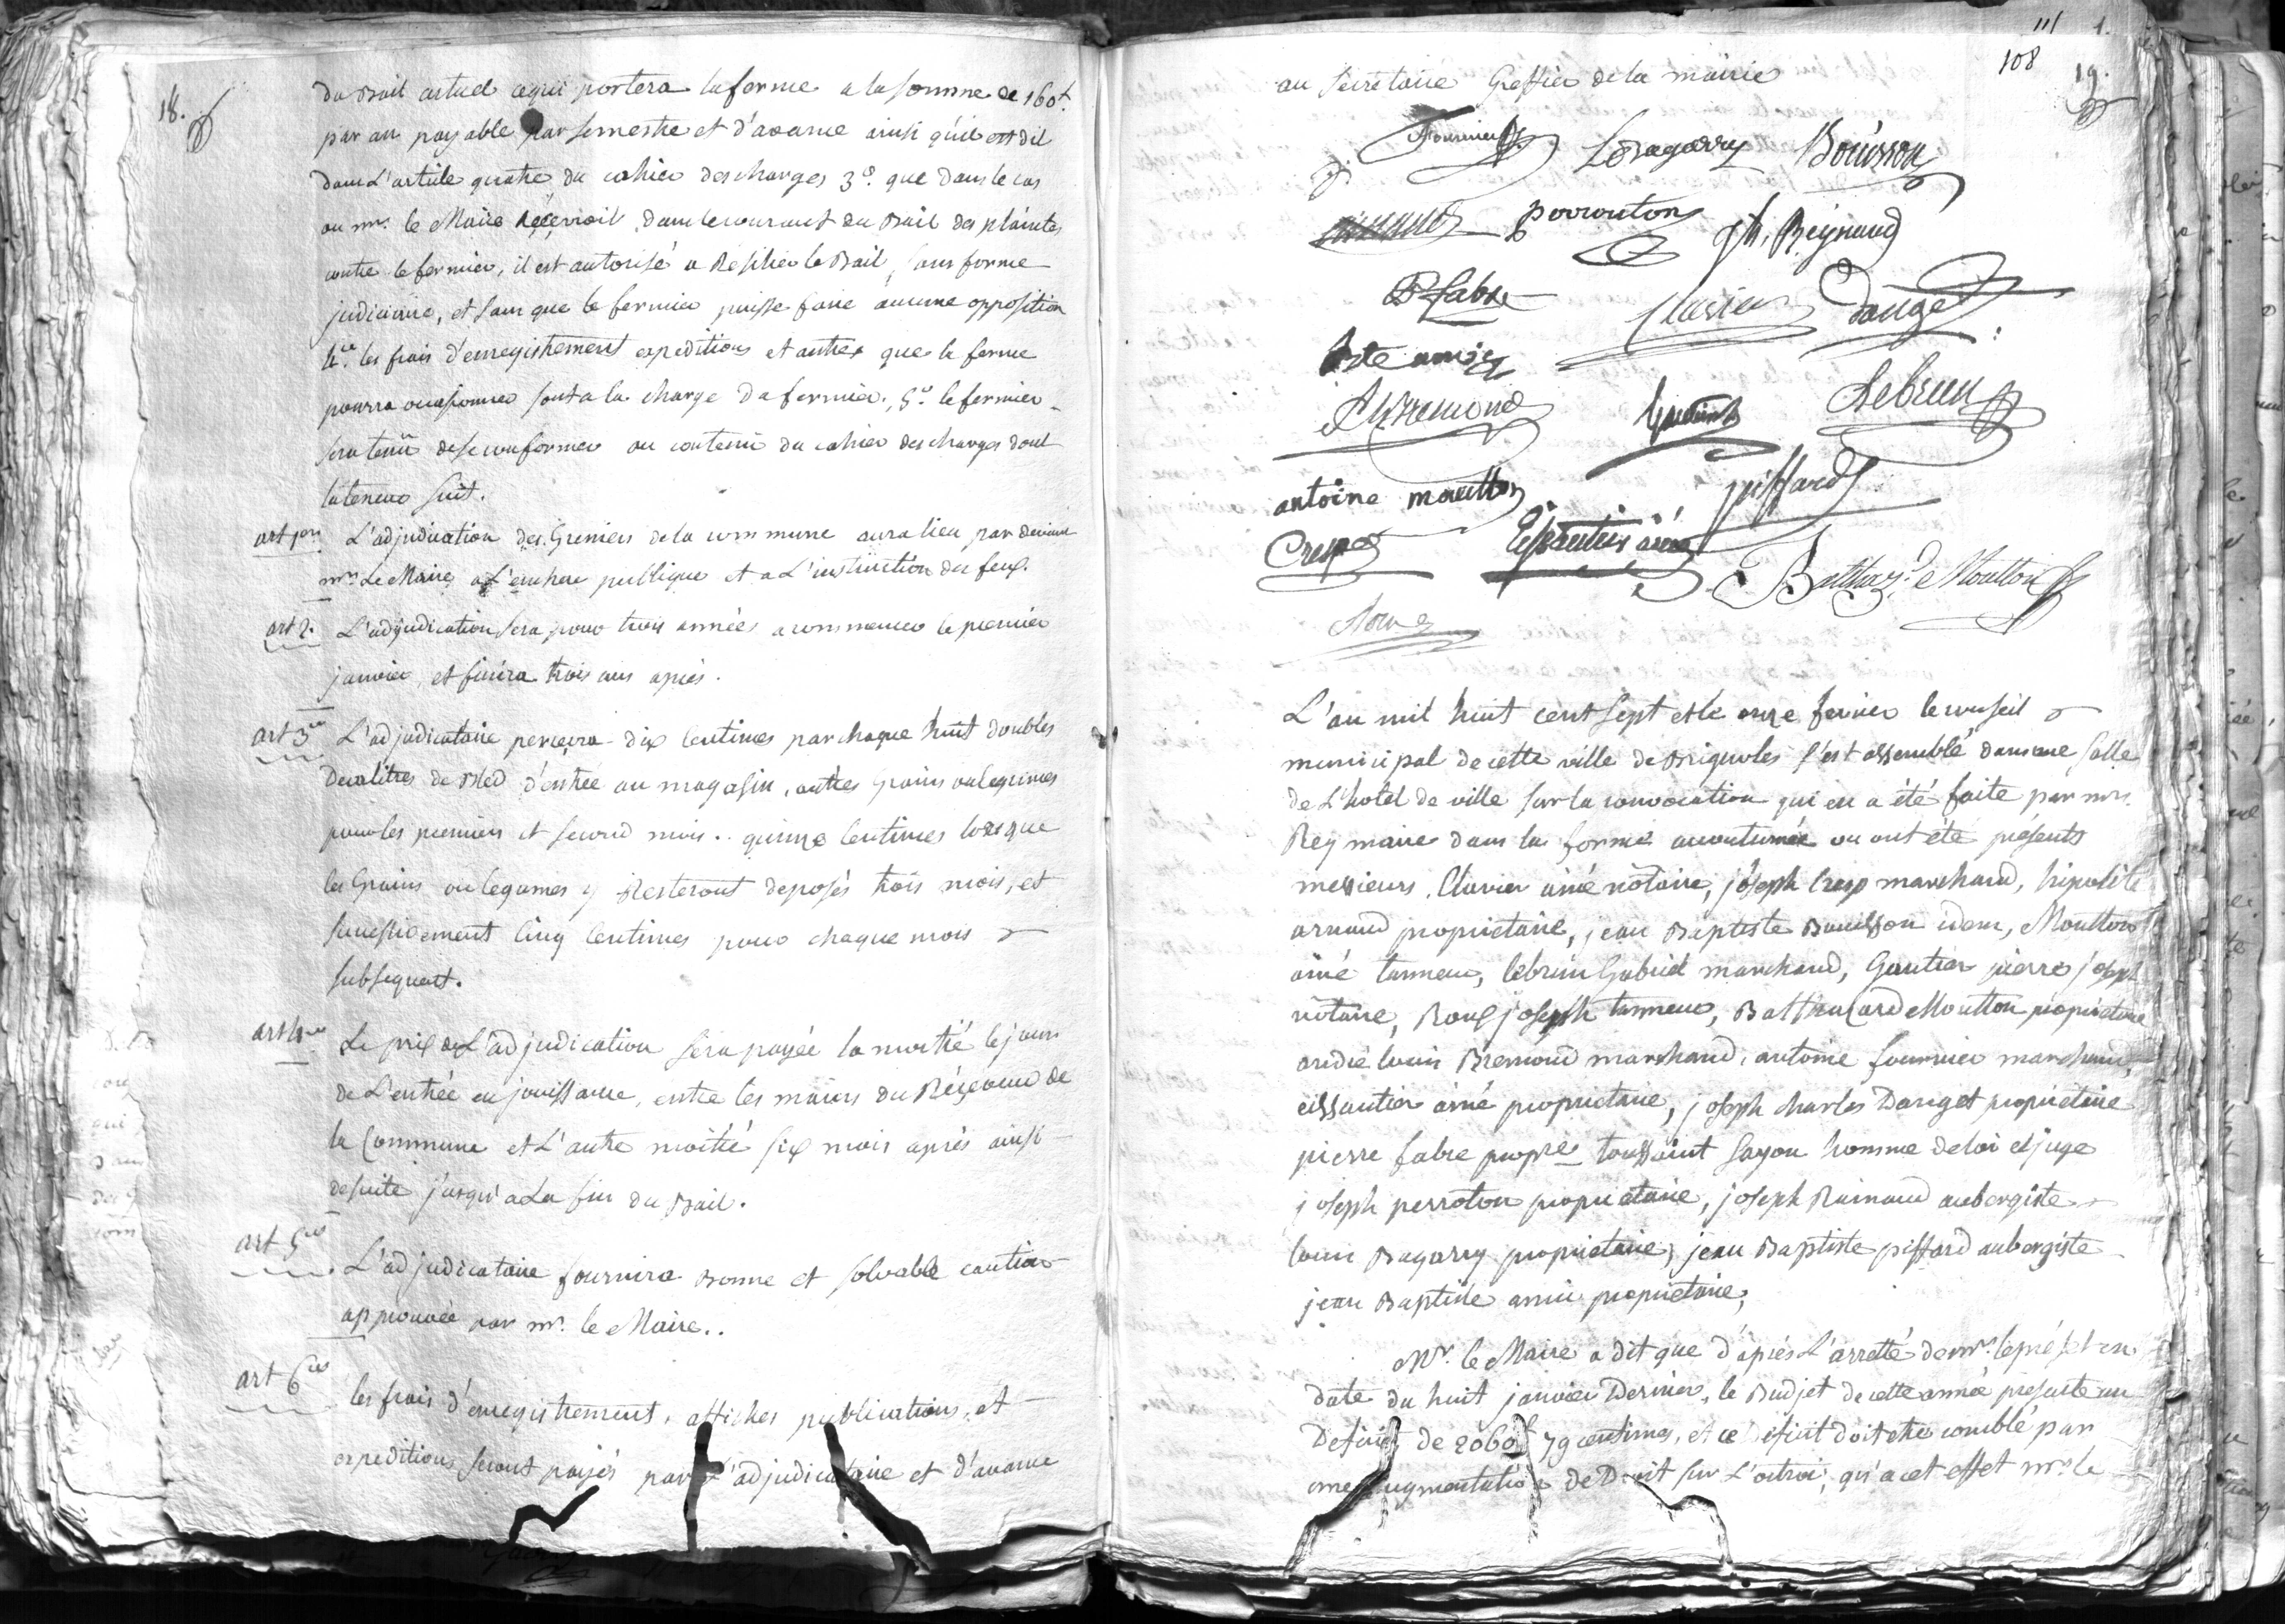 18.
du Bail actuel ce qui portera la ferme a la somme de 160f
par an payable par semestre et d'avance ainsi qu'il est dit
dans L'article quatre du cahier des charges 3º. que dans le cas
ou mr. le Maire Recevroit dans le courant du Bail des plaintes
contre le fermier, il est autorisé a Resilier le Bail, sans forme
judiciaire, et sans que le fermier puisse faire aucune opposition
4º. les frais d'enregistrement expeditions et autres que la ferme
pourra occasionner sont a la charge du fermier. 5º. le fermier
sera tenu de se conformer au contenu du cahier des charges dont
la teneur suit.
art 1er L'adjudication des Greniers de la commune aura lieu par devant
mr. Le Maire a L'enchere publique et a L'instinction des feux.
art 2. L'adjudication sera pour trois années a commencer le premier
janvier, et finira trois ans après.
art 3me L'adjudicataire percevra dix Centimes par chaque huit doubles
Decalitres de Bled d'entrée au magasin, autres Grains ou legumes
pour les premier et second mois.. quinze Centimes lorsque
les Grains ou legumes y Resteront deposés trois mois, et
successivement Cinq Centimes pour chaque mois
subsequent.
art 4me Le prix de L'adjudication sera payée la moitié le jour
de L'entrée en jouissance, entre les mains du Réçeveur de
la Commune et L'autre moitié six mois après ainsi
de suite jusqu'a La fin du Bail.
art 5me L'adjudicataire fournira Bonne et solvable caution
approuvée par mr. le Maire..
art 6me les frais d'enregistrement, affiches publications, et
expeditions seront payés par L'adjudicataire et d'avance
111 1.
108 19.
au Secretaire Greffier de la mairie
Fournier Ls Bagarry Bouisson
perrouton Jh. Reynaud
P Fabre Clavier Dauget
Bte amic
A L Bremond Gautier Lebrun
antoine moutton piffard
Cresp Eissautier ainé
Balthazard Moutton
L'an mil huit cent sept et le onze fevrier le conseil
municipal de cette ville de Brignoles s'est assemblé dans une salle
de L'hotel de ville sur la convocation qui en a été faite par mr.
Rey maire dans la forme accoutumée ou ont été présents
messieurs. Clavier ainé nótaire, joseph Cresp marchand, hipolite
arnaud proprietaire, jean Baptiste Bouisson idem, Moutton
ainé tanneur, lebrun Gabriel marchand, Gautier pierre joseph
nótaire, Roux joseph tanneur, Balthazard Moutton proprietaire
andré louis Bremond marchand, antoine fournier marchand,
eissautier ainé proprietaire, joseph charles Dauget proprietaire
pierre fabre propre toussaint sayou homme de loi et juge
joseph perroton proprietaire, joseph Rainaud aubergiste
louis Bagarry proprietaire, jean Baptiste piffard aubergiste
jean Baptiste amic proprietaire,
Mr. le Maire a dit que d'après L'arretté de mr. le préfet en
date du huit janvier Dernier, le Budjet de cette année presente un
Deficit de 2060f 79 centimes, et ce deficit doit etre comblé par
une augmentation de Droit sur L'octroi; qu'a cet effet mr. le